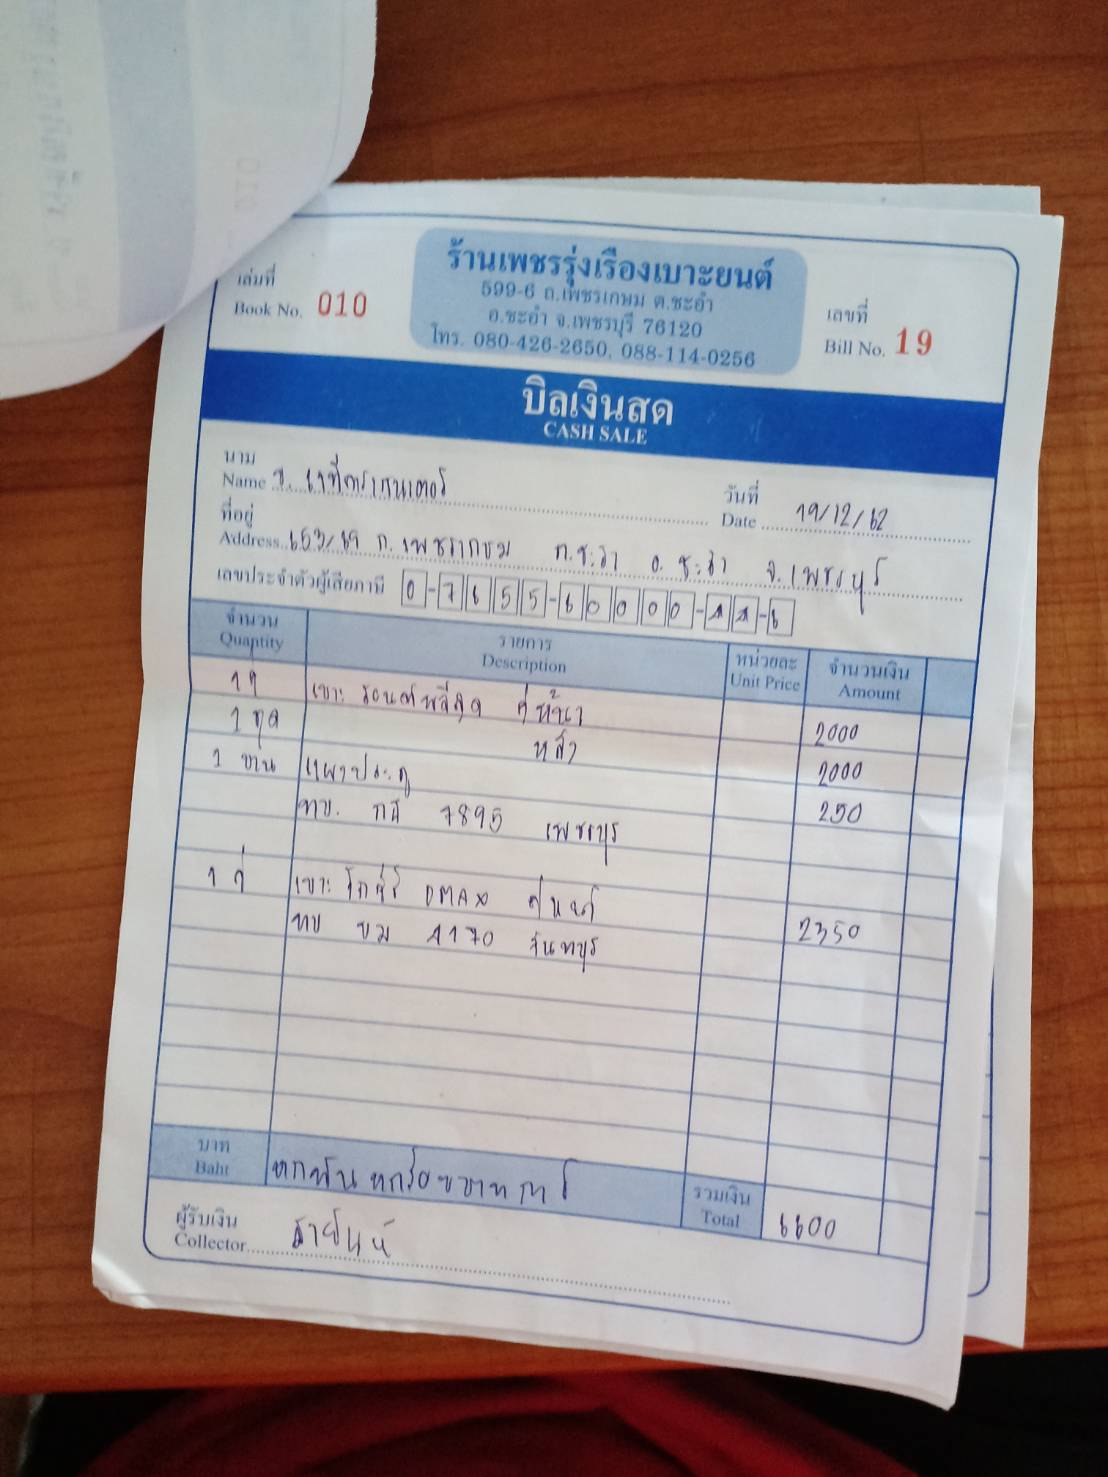 ร้านเพชรรุ่งเรืองเบาะยนต์
599-6 ถ.เพชรเกษม ต.ชะอำ
อ.ชะอำ จ.เพชรบุรี 76120
โทร. 080-426-2650, 088-114-0256
เล่มที่
Book No. 010
เลขที่
Bill No. 19
บิลเงินสด
CASH SALE
นาม
Name
วันที่
Date 19/12/62
ที่อยู่
Address ต.ชะอำ อ.ชะอำ จ.เพชรบุรี
เลขประจำตัวผู้เสียภาษี 0-7655-60000-11-6
จำนวน รายการ หน่วยละ จำนวนเงิน
Quantity Description Unit Price Amount
1 คู่ เบาะ หน้า 2000
1 ชุด หลัง 2000
1 บาน แผงประตู 250
ทบ. 7895 เพชรบุรี
1 คู่ เบาะ DMAX คู่หน้า 2350
ทบ ขม 4170 จันทบุรี
บาท
Baht หกพันหกร้อยบาท
รวมเงิน
Total 6600
ผู้รับเงิน
Collector